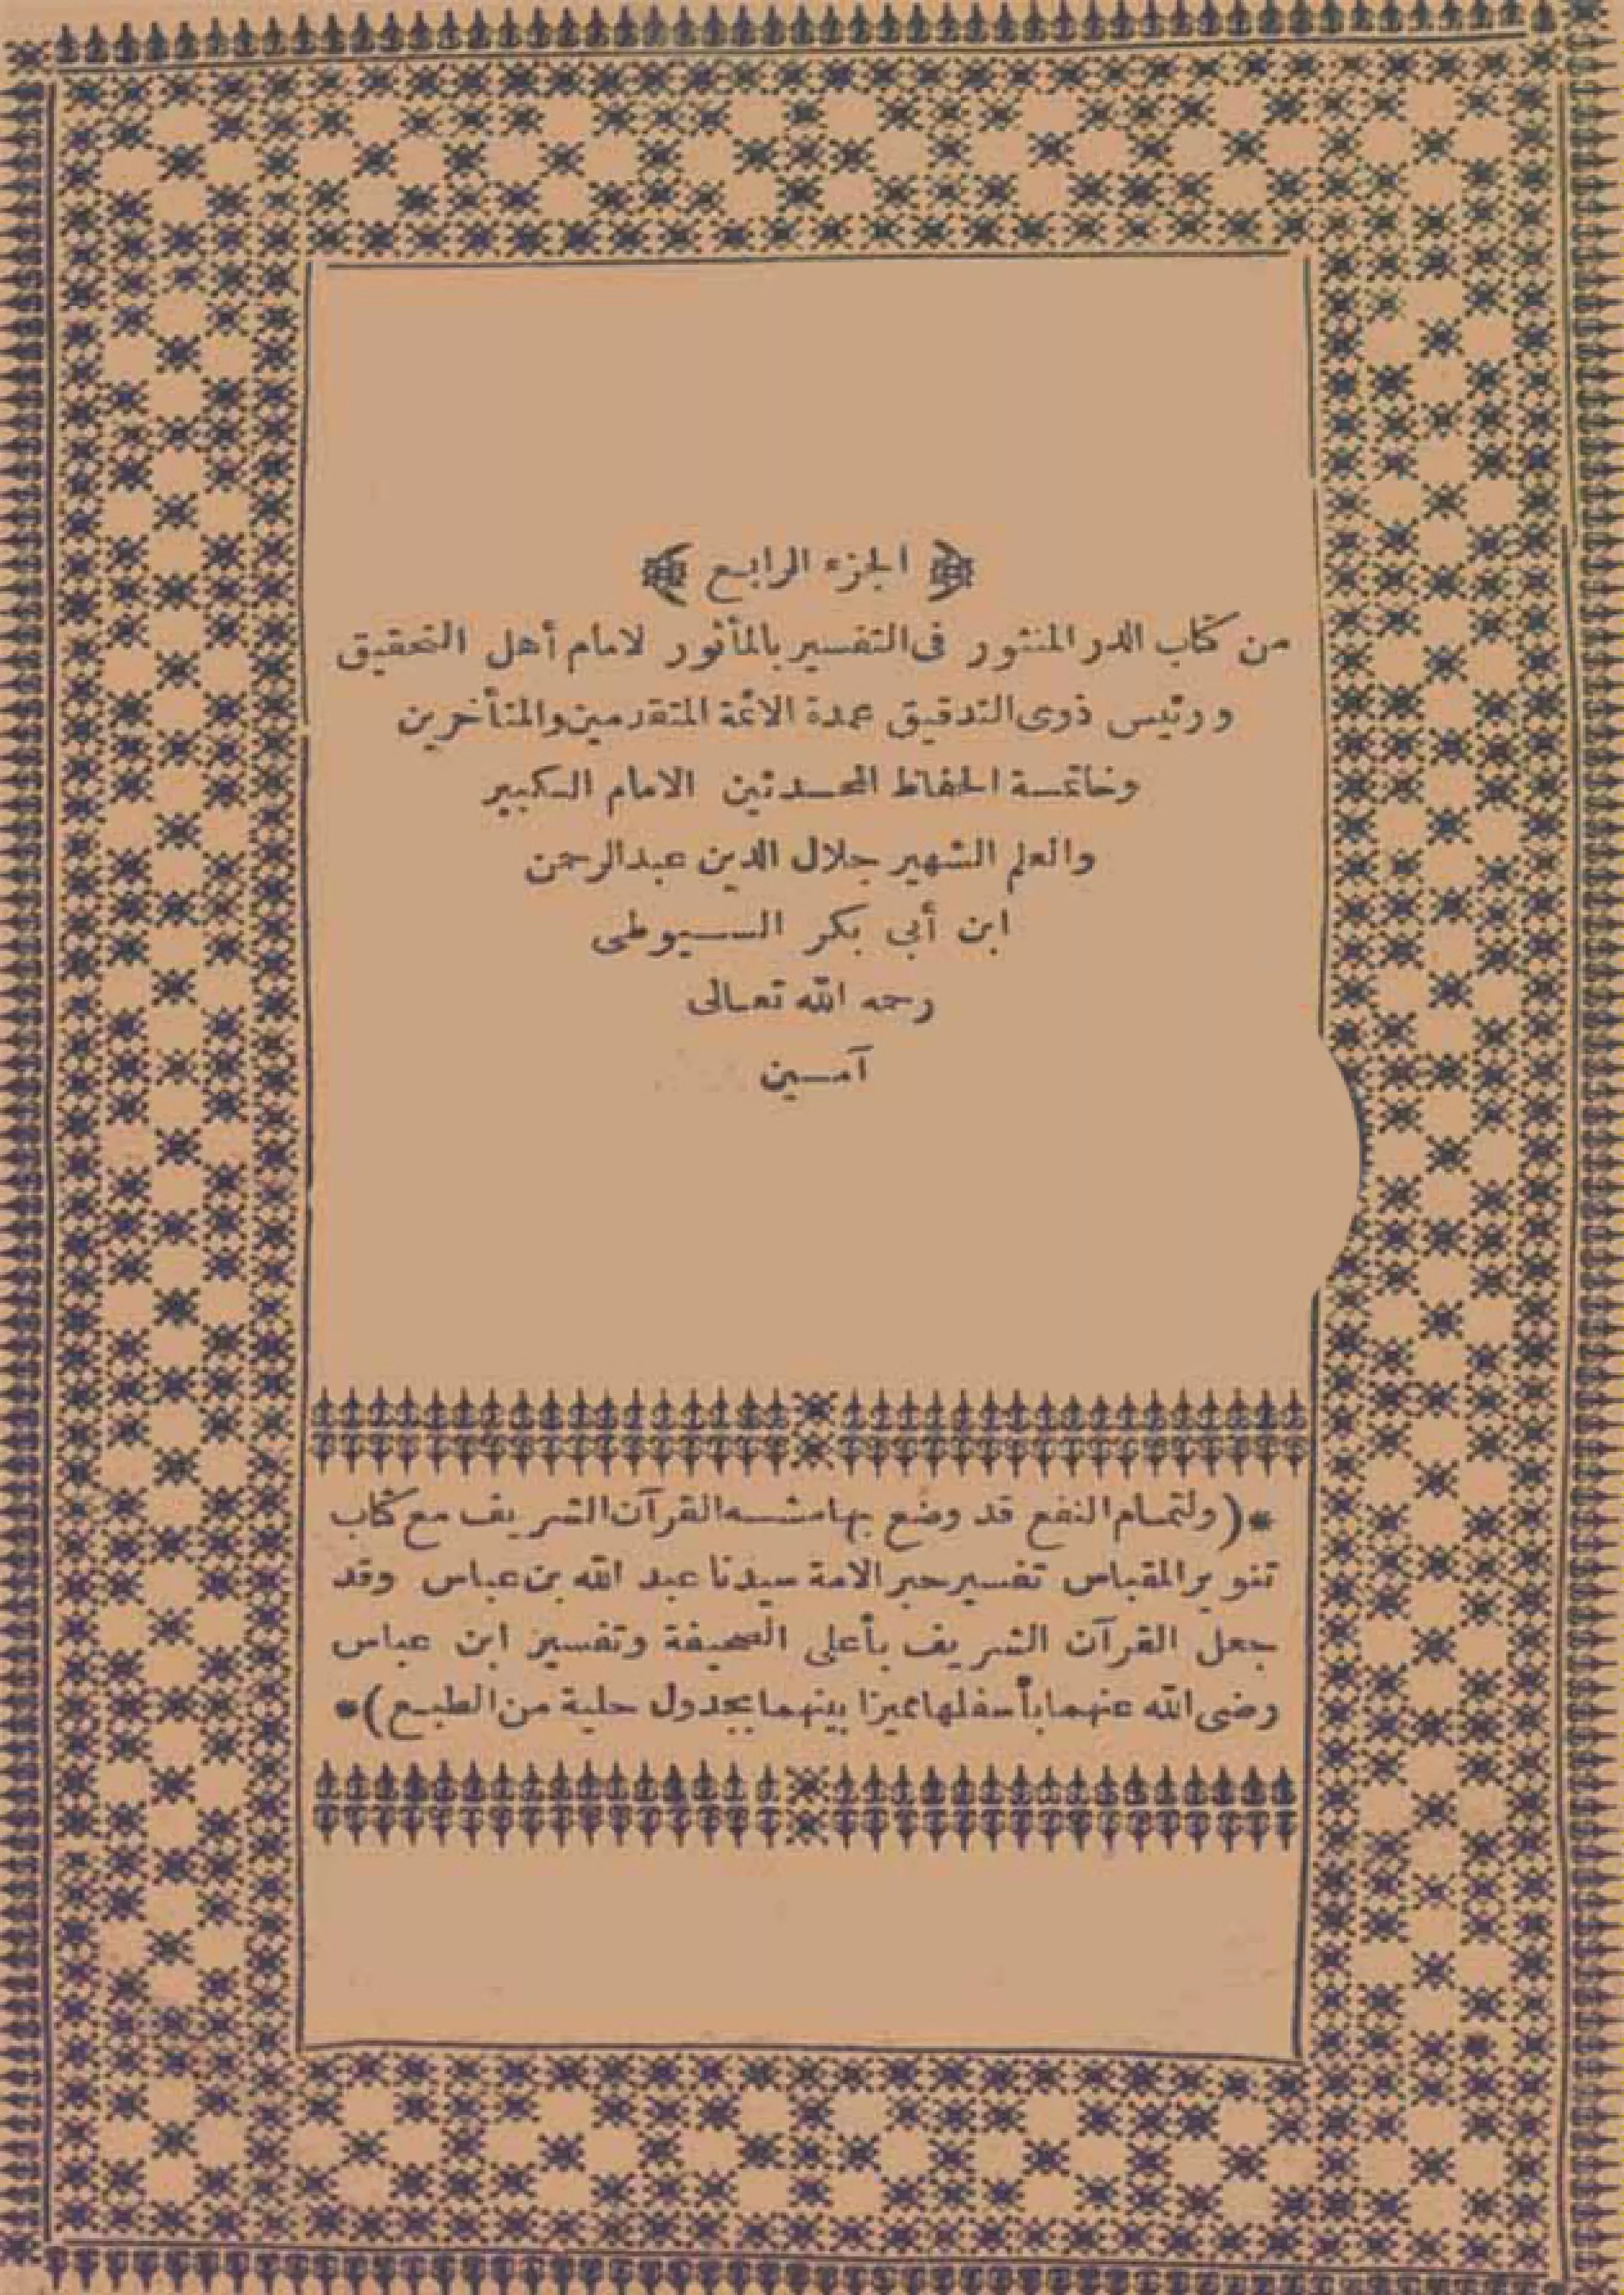 ﴿ الجزء الرابع ﴾
من كتاب الدر المنثور فى التفسير بالمأثور لامام أهل التحقيق
ورئيس ذوى التدقيق عمدة الائمة المتقدمين والمتأخرين
وخاتمة الحفاظ المحدثين الامام الكبير
والعلم الشهير جلال الدين عبدالرحمن
ابن أبي بكر السيوطى
رحمه الله تعالى
آمين
*(ولتمام النفع قد وضع بهامشه القرآن الشريف مع كتاب
تنوير المقباس تفسير حبر الامة سيدنا عبد الله بن عباس وقد
جعل القرآن الشريف بأعلى الصحيفة وتفسير ابن عباس
رضى الله عنهما بأسفلها مميزا بينهما بجدول حلية من الطبع)*